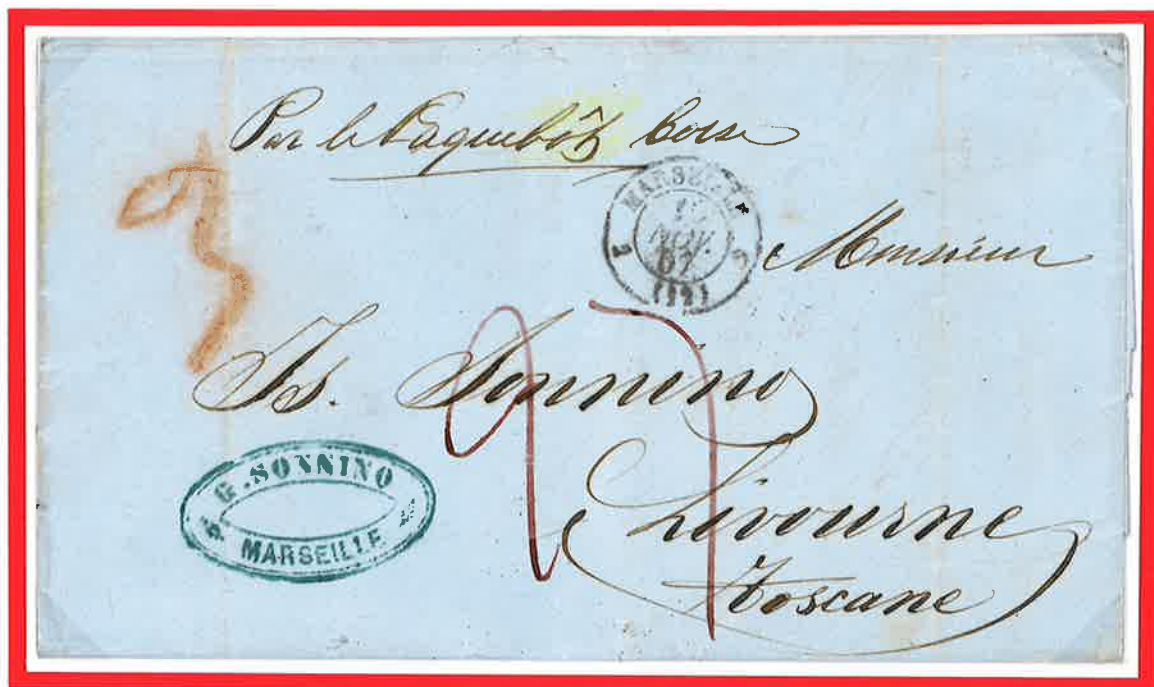 Par le Paquebôt Corse
MARSEILLE
NOV.
57
(12)
Monsieur
Is. Sonnino
Livourne
Toscane
G. SONNINO
MARSEILLE